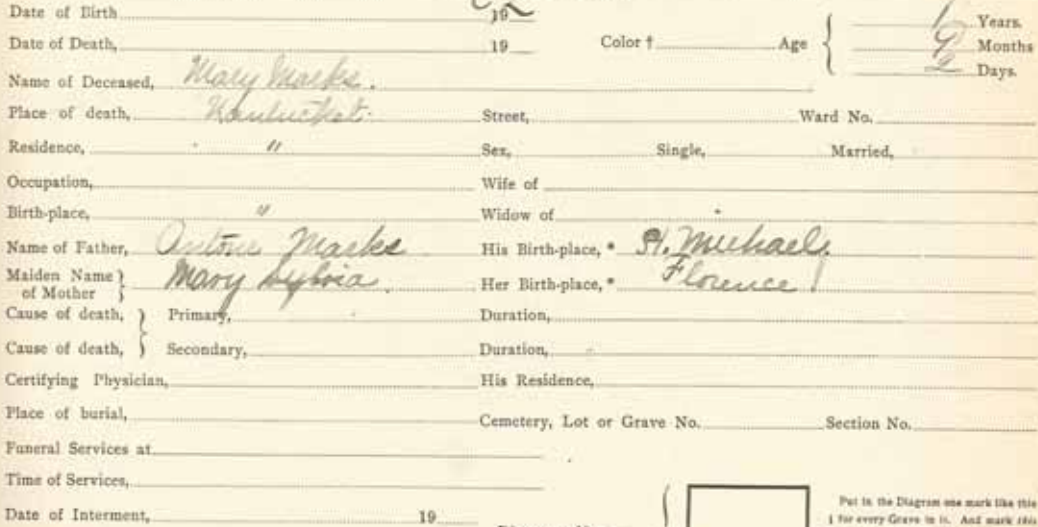 Date of Birth 19
Date of Death, 19 Color † Age { 1 Years.
9 Months
2 Days.
Name of Deceased, Mary Marks.
Place of death, Nantucket. Street, Ward No.
Residence, " Sex, Single, Married,
Occupation, Wife of
Birth-place, " Widow of
Name of Father, Antone Marks His Birth-place, * St. Michaels
Maiden Name of Mother } Mary Sylvia. Her Birth-place, * Florence
Cause of death, } Primary, Duration,
Cause of death, } Secondary, Duration,
Certifying Physician, His Residence,
Place of burial, Cemetery, Lot or Grave No. Section No.
Funeral Services at
Time of Services,
Put in the Diagram one mark like this
Date of Interment, 19 | for every Grave in it. And mark this